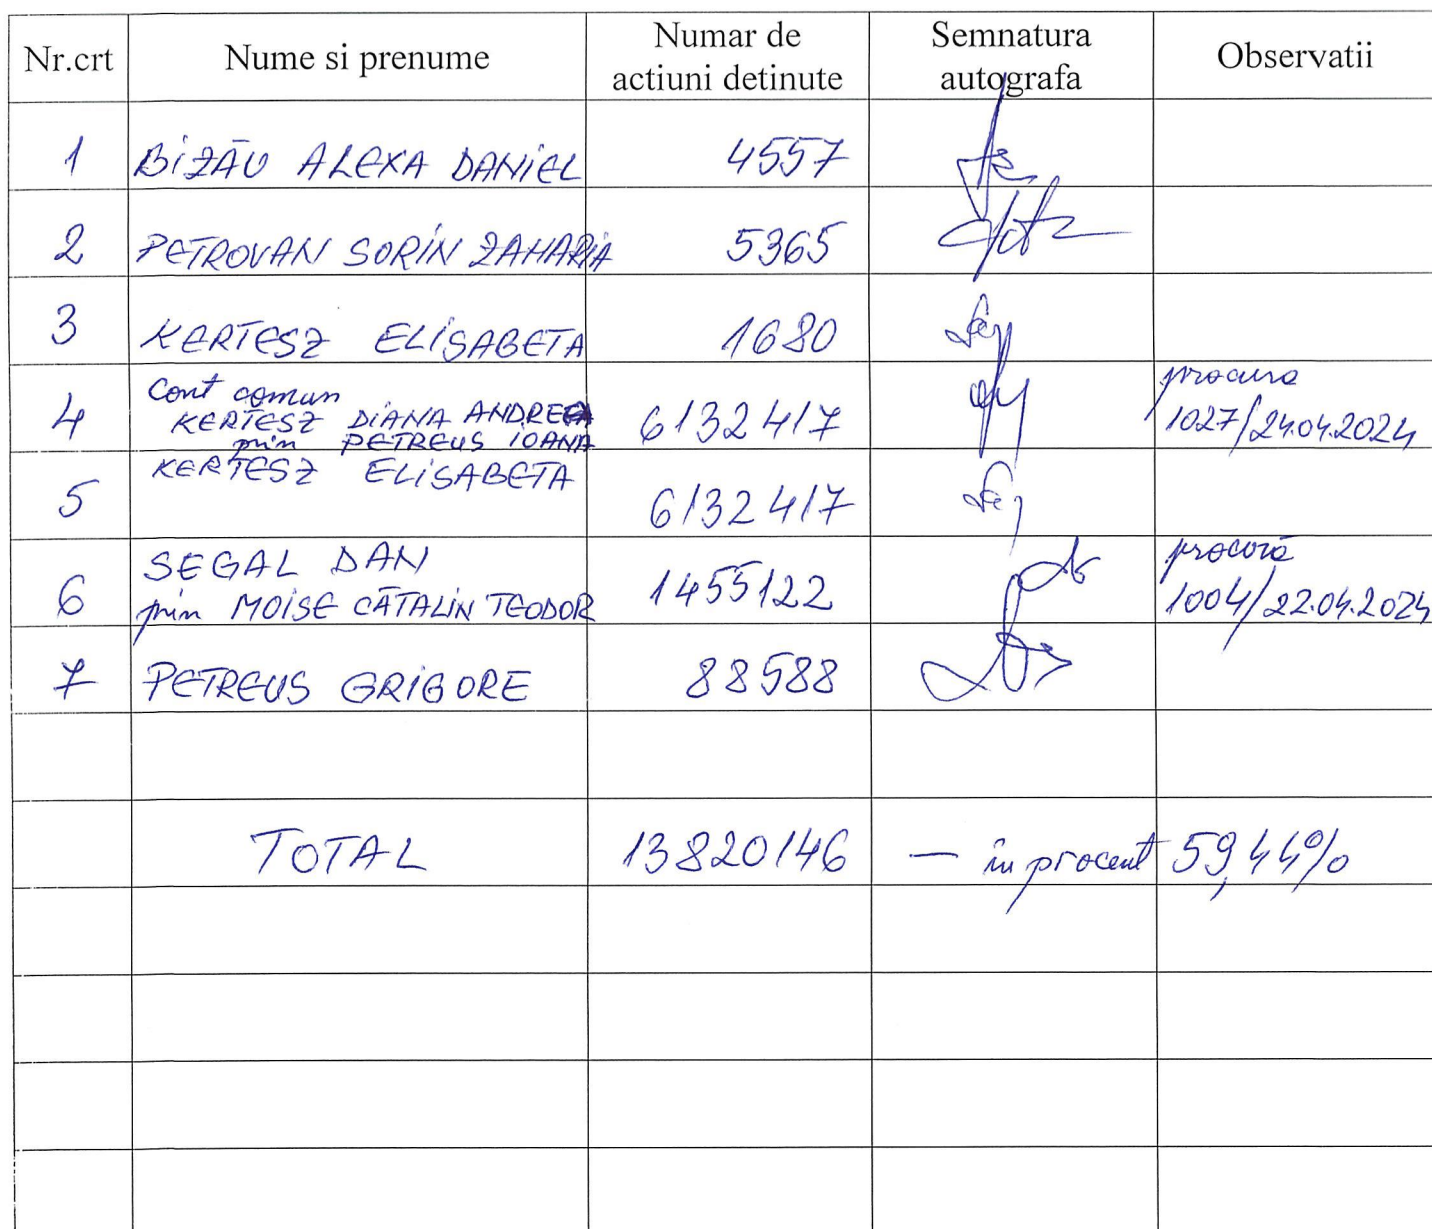 Nr.crt Nume si prenume Numar de actiuni detinute Semnatura autografa Observatii
1 BIZĂU ALEXA DANIEL 4557
2 PETROVAN SORIN ZAHARIA 5365
3 KERTESZ ELISABETA 1680
4 Cont comun KERTESZ DIANA ANDREEA prin PETREUS IOANA 6132417 procura 1027/24.04.2024
5 KERTESZ ELISABETA 6132417
6 SEGAL DAN prin MOISE CĂTALIN TEODOR 1455122 procură 1004/22.04.2024
7 PETREUS GRIGORE 88588
TOTAL 13820146 — în procent 59,44%